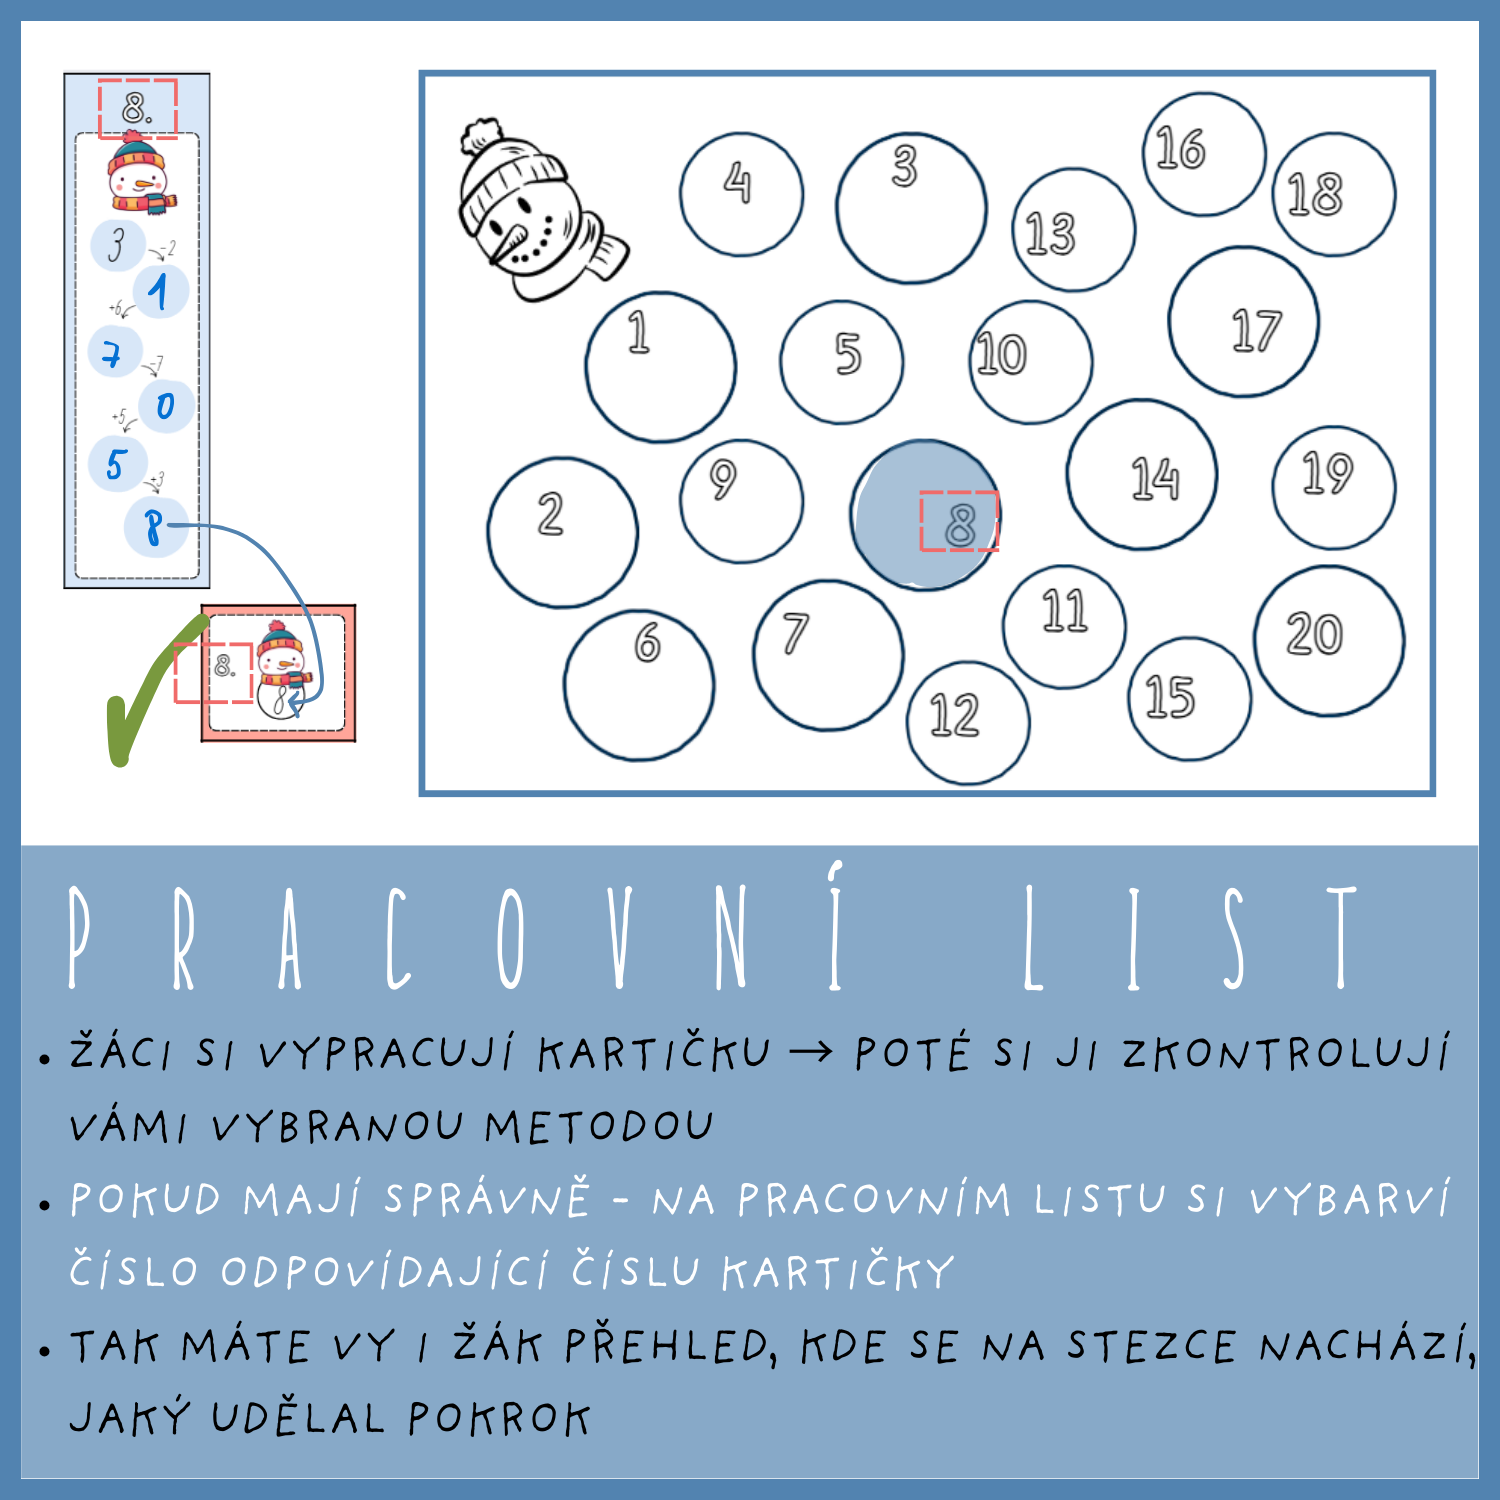 8.
3
-2
1
+6
7
-7
0
+5
5
+3
8
8.
8
4
3
13
16
18
1
5
10
17
2
9
8
14
19
6
7
11
12
15
20
PRACOVNÍ LIST
• ŽÁCI SI VYPRACUJÍ KARTIČKU → POTÉ SI JI ZKONTROLUJÍ
VÁMI VYBRANOU METODOU
• POKUD MAJÍ SPRÁVNĚ - NA PRACOVNÍM LISTU SI VYBARVÍ
ČÍSLO ODPOVÍDAJÍCÍ ČÍSLU KARTIČKY
• TAK MÁTE VY I ŽÁK PŘEHLED, KDE SE NA STEZCE NACHÁZÍ,
JAKÝ UDĚLAL POKROK